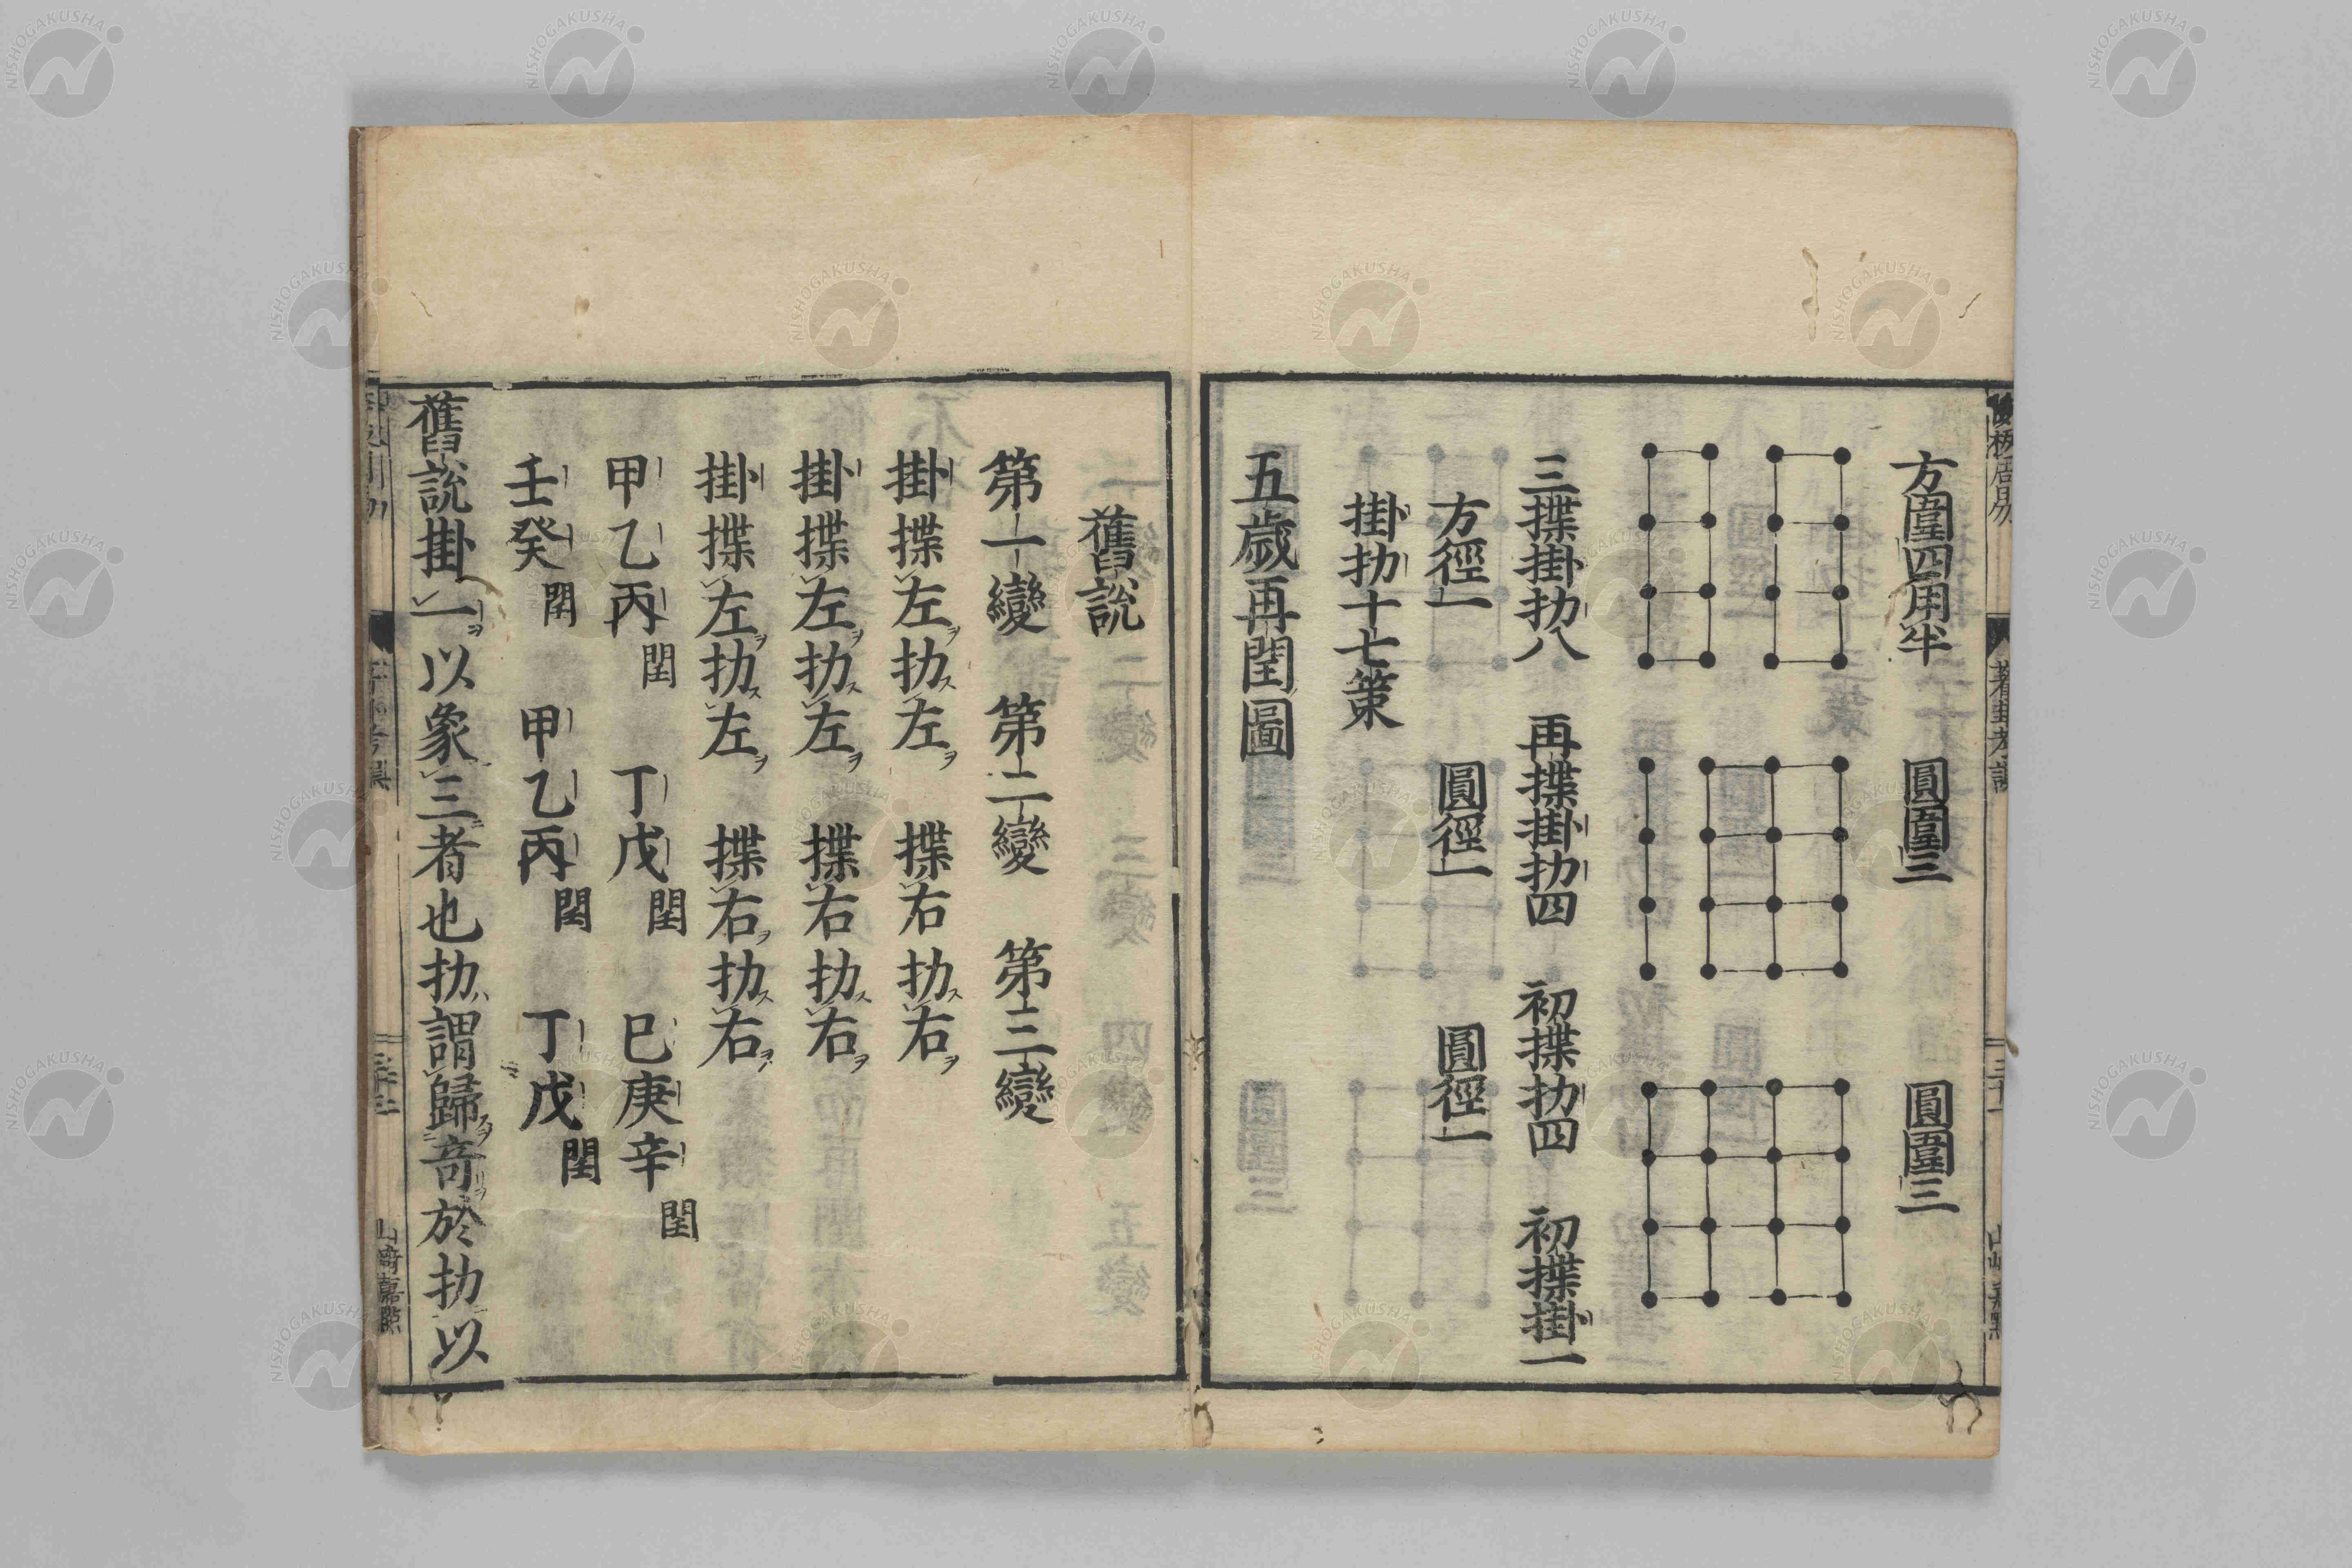 方圍四用半　圓圍三　圓圍三
三揲掛扐八　再揲掛扐四　初揲扐四　初揲掛一
方徑一　圓徑一　圓徑一
掛扐十七策
五歲再閏圖
舊說
第一變　第二變　第三變
掛揲左扐左　揲右扐右
掛揲左ヲ扐ス左ヲ　揲右扐ス右ヲ
掛揲左ヲ扐ス左ヲ　揲右ヲ扐ス右ヲ
甲乙丙閏　丁戊閏　巳庚辛閏
壬癸閏　甲乙丙閏　丁戊閏
舊說掛一以象三者也扐謂歸奇於扐以
山崎嘉點
NISHOGAKUSHA